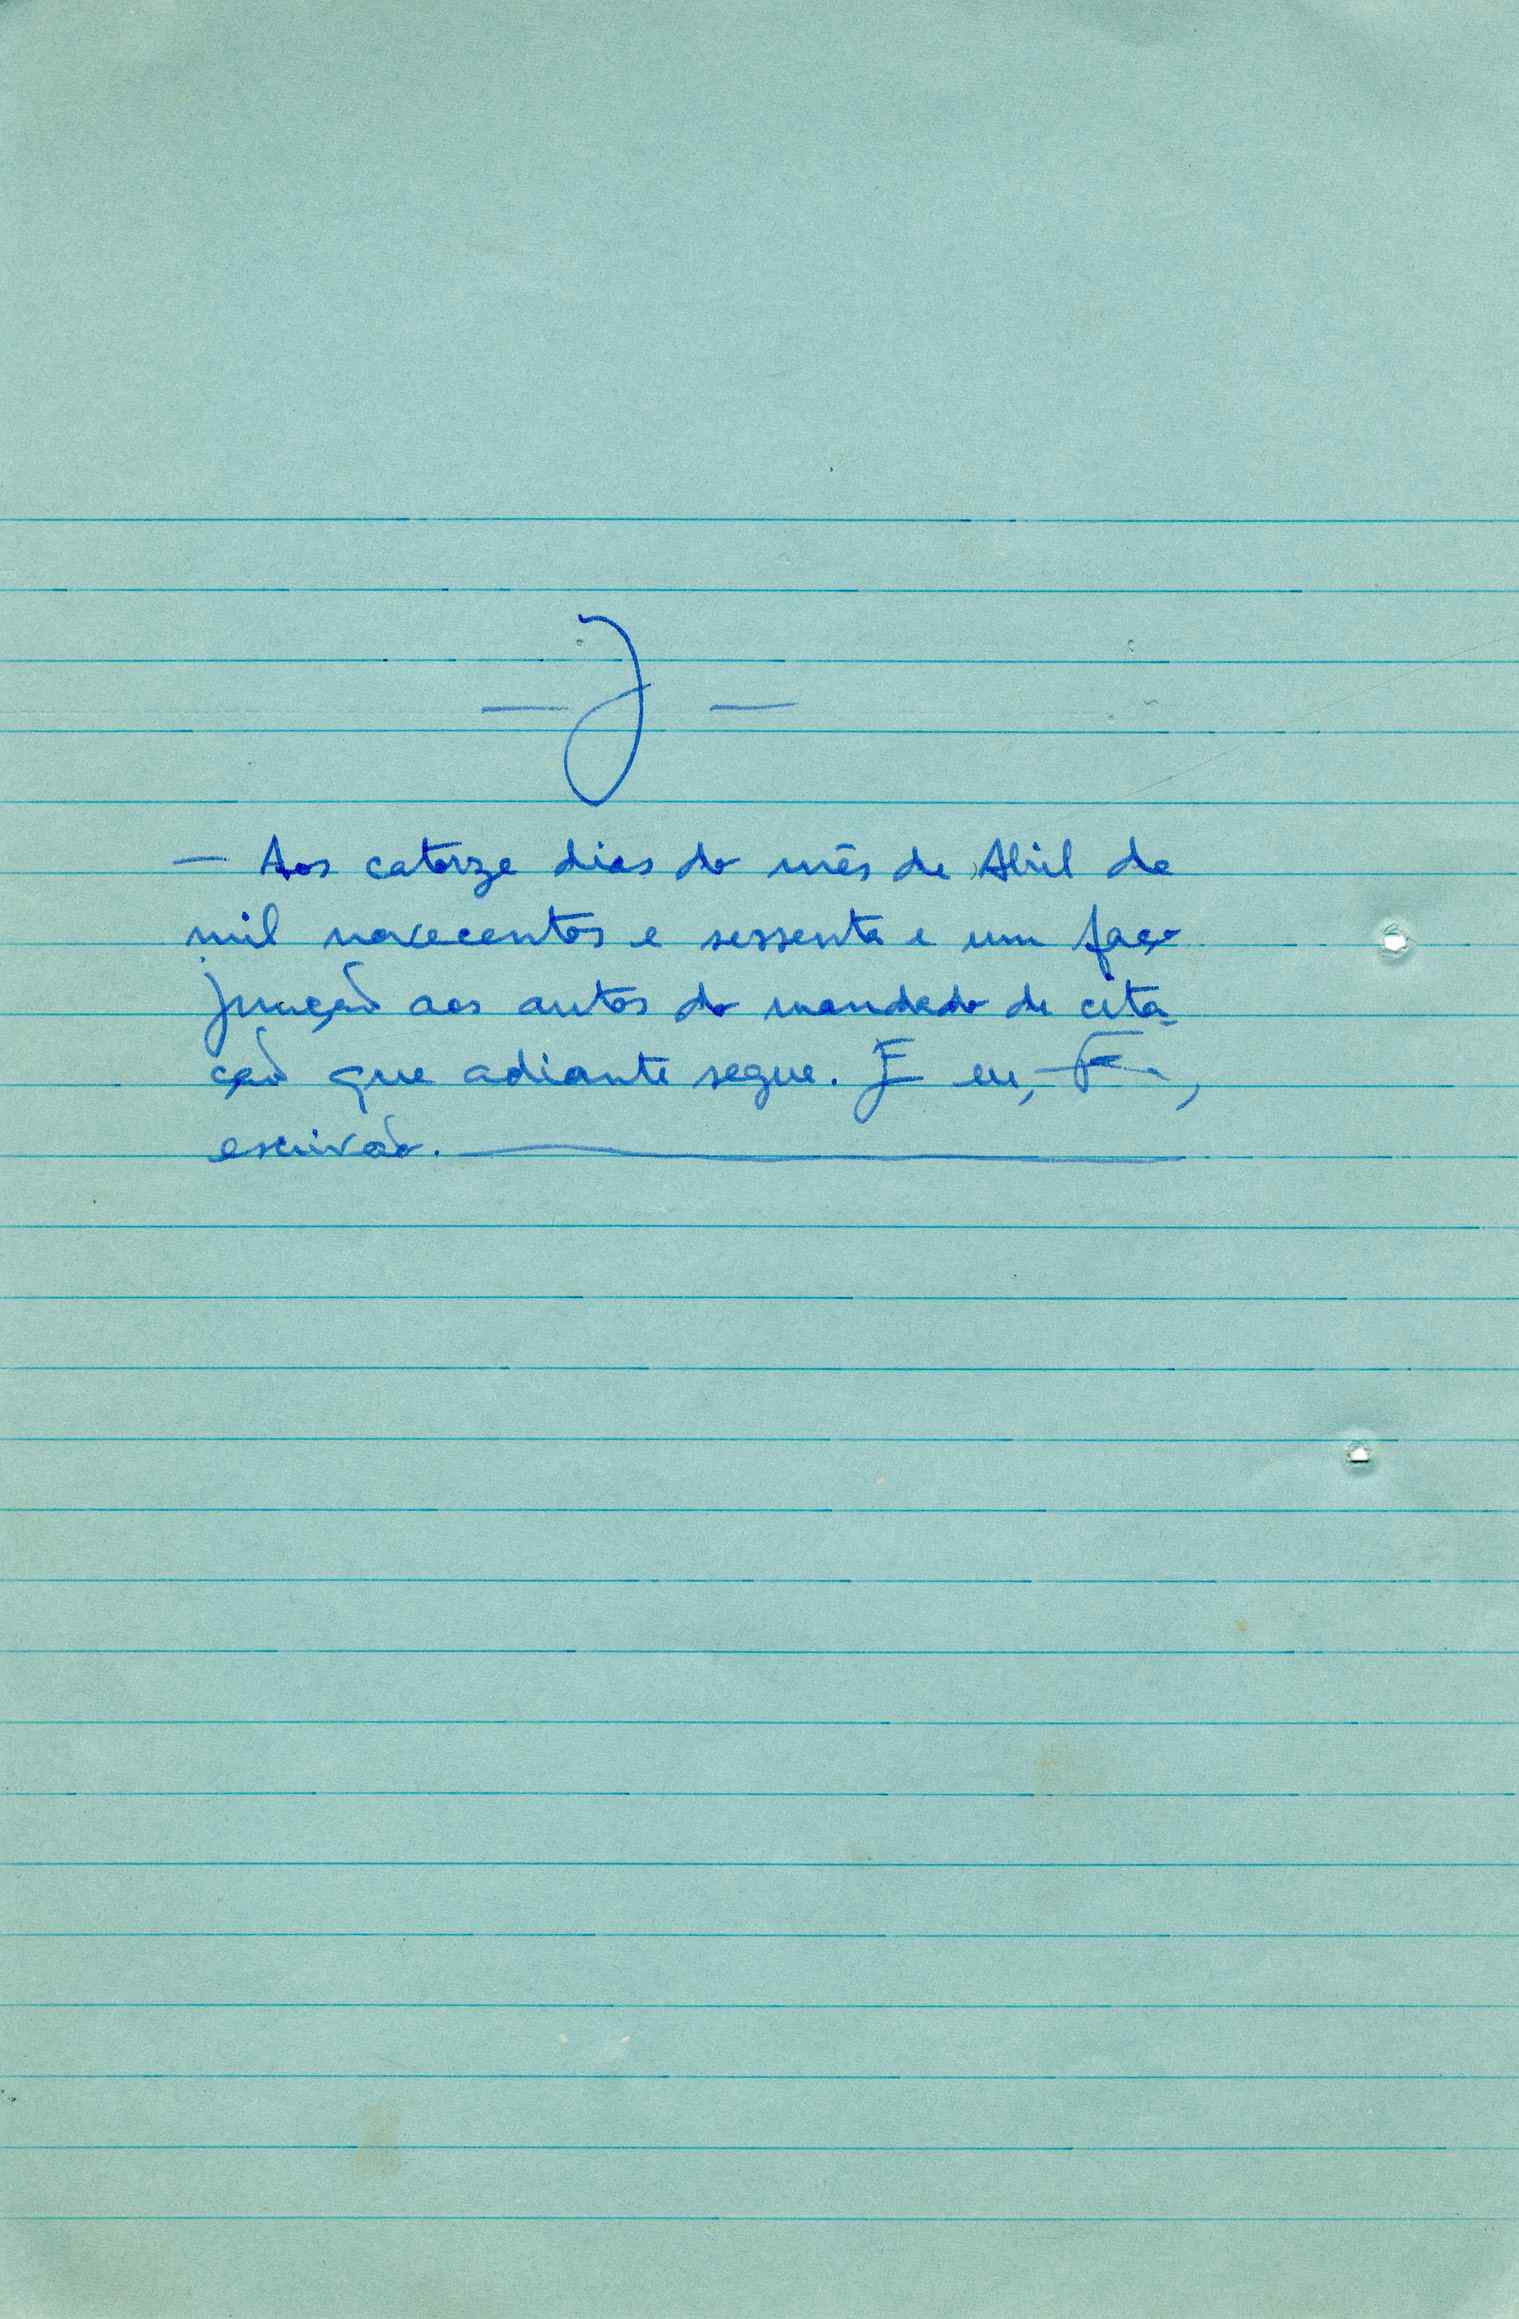 — J —
— Aos catorze dias do mês de Abril de
mil novecentos e sessenta e um faço
junção aos autos do mandado de cita
ção que adiante segue. E eu,
escrivão.